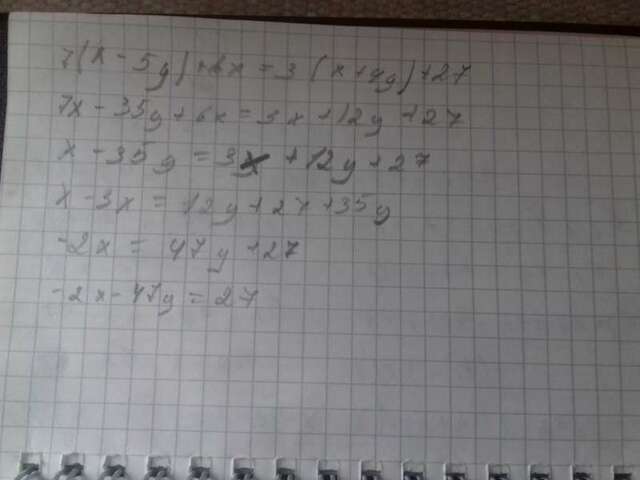 7(x - 5y) + 6x = 3(x + 4y) + 27
7x - 35y + 6x = 3x + 12y + 27
x - 35y = 3x + 12y + 27
x - 3x = 12y + 27 + 35y
-2x = 47y + 27
-2x - 47y = 27